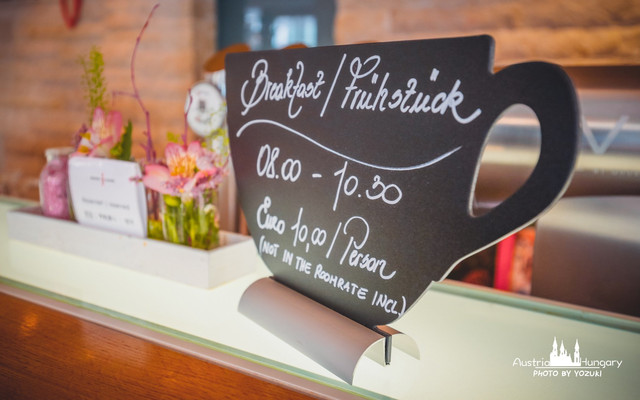 Breakfast / Frühstück
08.00 - 10.30
Euro 10,00 / Person
(NOT IN THE ROOMRATE INCL.)
Austria Hungary
PHOTO BY YOZUKI